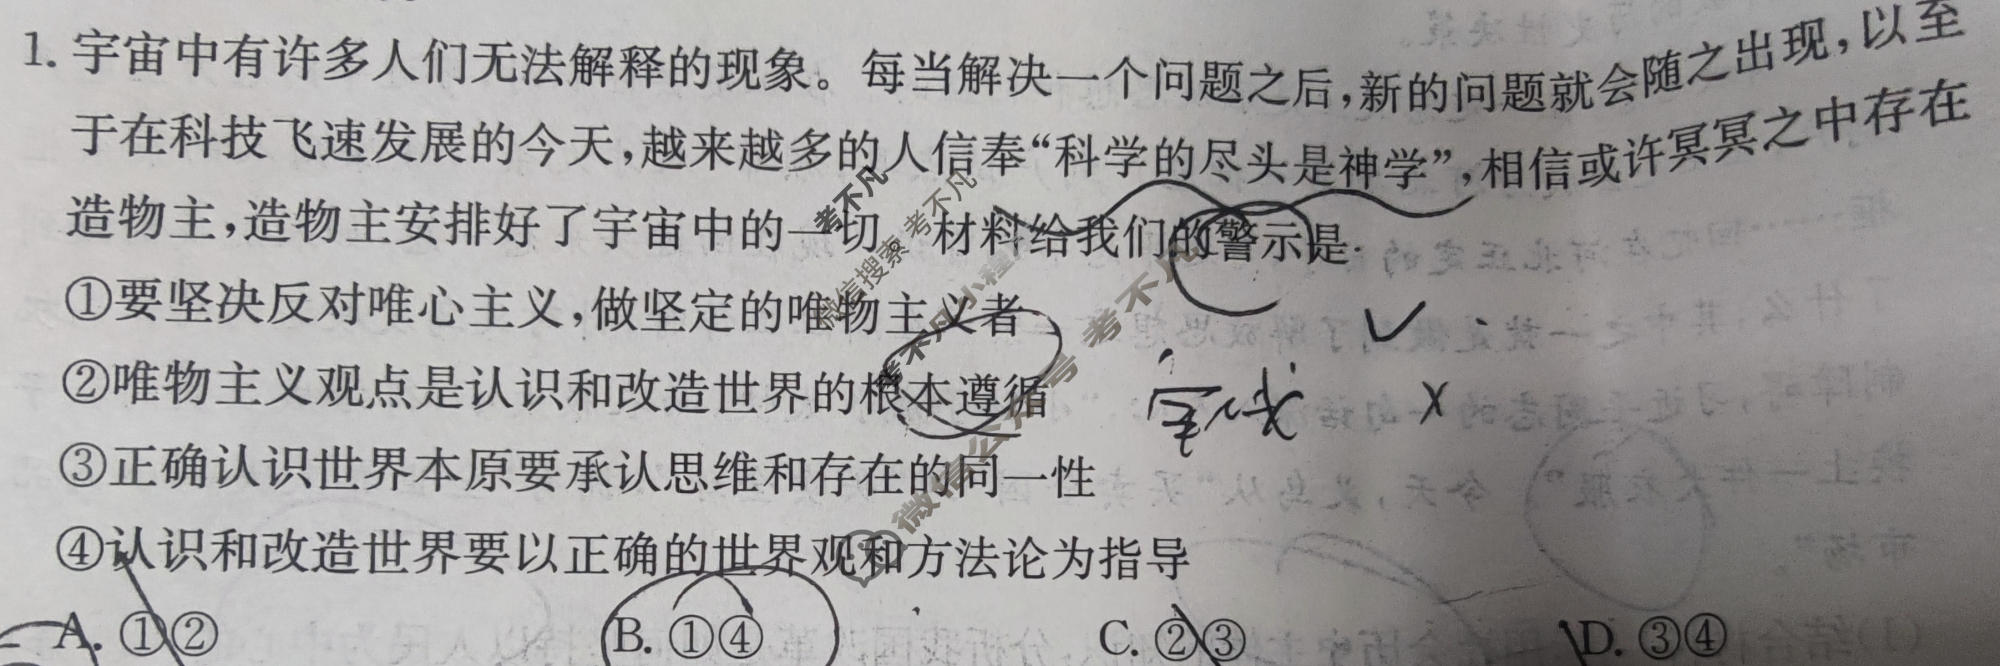 1. 宇宙中有许多人们无法解释的现象。每当解决一个问题之后,新的问题就会随之出现,以至
于在科技飞速发展的今天,越来越多的人信奉“科学的尽头是神学”,相信或许冥冥之中存在
造物主,造物主安排好了宇宙中的一切。材料给我们的警示是
①要坚决反对唯心主义,做坚定的唯物主义者
②唯物主义观点是认识和改造世界的根本遵循
③正确认识世界本原要承认思维和存在的同一性
④认识和改造世界要以正确的世界观和方法论为指导
A. ①②
B. ①④
C. ②③
D. ③④
考不凡
考不凡
微信搜索
考不凡小程序
微信公众号 考不凡